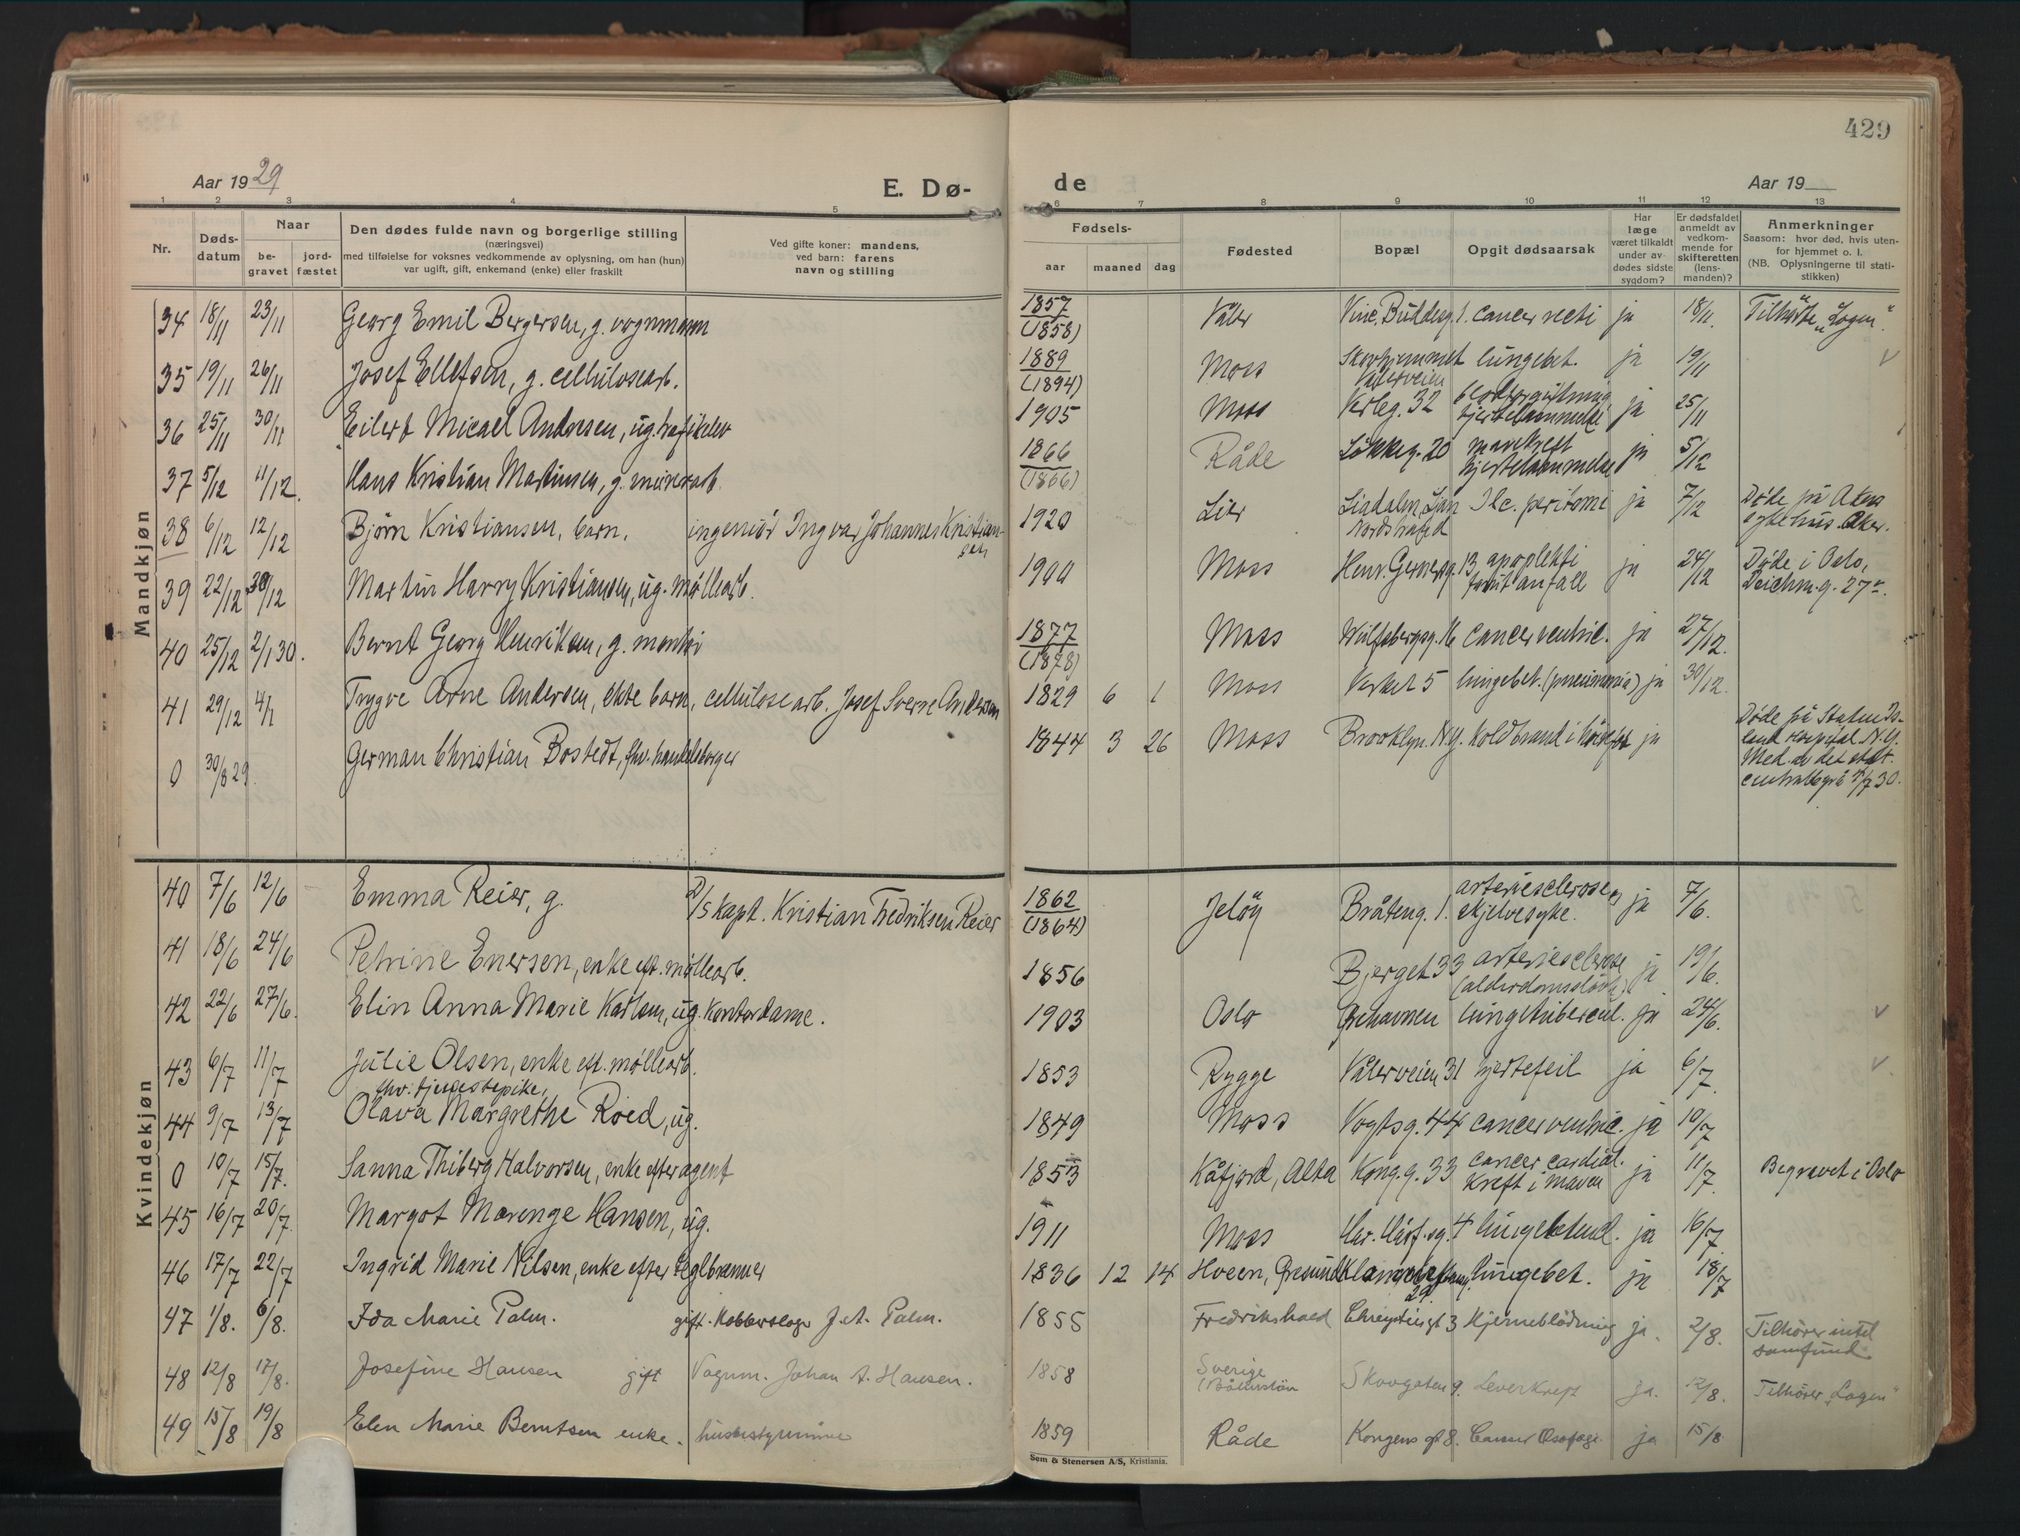 429
Aar 1929
E. Dø-
de
Aar 19
1 2 3 4 5 6 7 8 9 10 11 12 13
Nr.
Døds-
datum
Naar
be-
gravet
jord-
fæstet
Den dødes fulde navn og borgerlige stilling
(næringsvei)
med tilføielse for voksnes vedkommende av oplysning, om han (hun)
var ugift, gift, enkemand (enke) eller fraskilt
Ved gifte koner: mandens,
ved barn: farens
navn og stilling
Fødsels-
aar maaned dag
Fødested
Bopæl
Opgit dødsaarsak
Har
læge
været tilkaldt
under av-
dødes sidste
sygdom?
Er dødsfaldet
anmeldt av
vedkom-
mende for
skifteretten
(lens-
manden)?
Anmerkninger
Saasom: hvor død, hvis uten-
for hjemmet o. l.
(NB. Oplysningerne til stati-
stikken)
Mandkjøn
34 18/11 23/11 Georg Emil Bergersen, g. vognmann 1857 (1858) Våler Vinc. Buldesg. 1. cancer recti ja 18/11. Tilhørte „Logen".
35 19/11 26/11 Josef Ellefsen, g. cellulosearb. 1889 (1894) Moss Skoghjemmet Vålerveien lungebet. ja 19/11 v
36 25/11 30/11 Eilert Micael Andresen, ug. 1905 Moss Verleg. 32 blodforgiftning hjertelammelse ja 25/11
37 5/12 11/12. Hans Kristian Martinsen, g. murerarb. 1866 (1866) Råde Løkkeg. 20 mavekreft hjertelammelse ja 5/12
38 6/12 12/12 Bjørn Kristiansen, barn. ingeniør Ingvar Johannes Kristian-
sen 1920 Lier peritoni ja 7/12 Døde på Aker
sykehus. Aker.
39 22/12 30/12 Martin Harry Kristiansen, ug. møllearb. 1900 Moss Henr. Gernersg. 13 apoplekti anfall ja 24/12 Døde i Oslo,
Deichm.g. 27
40 25/12 2/1 30. Bernt Georg Henriksen, g. montør 1877 (1878) Moss Wulfsbergsg. 16 cancer ventric. ja 27/12.
41 29/12 4/1 Trygve Arne Andersen, ekte barn, cellulosearb. Josef Sverre Andersen 1829 6 1 Moss Verket 5 lungebet. (pneumonia) ja 30/12.
0 30/8 29. German Christian Bostedt, fhv. handelsborger 1844 3 26 Moss Brooklyn. N.Y. koldbrand i ja Døde på Staten Is-
land hospital N.Y.
Med. av det stat.
centralbyrå /7 30.
Kvindekjøn
40 7/6 12/6 Emma Reier, g. D/S kapt. Kristian Fredriksen Reier 1862 (1864) Jeløy Bråteng. 1. arteriesclerose, skjelvesyke. ja 7/6.
41 18/6 24/6 Petrine Enersen, enke eft. møllearb. 1856 Bjerget 33 arteriesclerose (alderdomssløvh.) ja 19/6.
42 22/6 27/6. Elin Anna Marie Karlsen, ug. kontordame. 1903 Oslo Grehavnen lungetubercul. ja 24/6. v
43 6/7 11/7 Julie Olsen, enke eft. møllearb. 1853 Rygge Vålerveien 31 hjertefeil ja 6/7. v
fhv. tjenestepike,
44 9/7 13/7 Olava Margrethe Roed, ug. 1849 Moss Vogtsg. 44 cancer ventric. ja 10/7
0 10/7 15/7. Sanna Thiberg Halvorsen, enke efter agent 1853 Kåfjord, Alta Kong.g. 33 cancer cardial. kreft i maven ja 11/7. Begravet i Oslo
45 16/7 20/7. Margot Marenge Hansen, ug. 1911 Moss Har. Hårf.sg. 4 lungebetend. ja 16/7.
46 17/7 22/7 Ingrid Marie Nilsen, enke efter teglbrenner 1836 12 14 Hveen, Øresund 29. lungebet. ja 18/7
47 1/8. 6/8. Ida Marie Palm. gift. Kobberslager J. A. Palm. 1855 Fredrikshald Chrystiesgt 3 Hjerneblödning ja. 2/8. Tilhører intet
samfund
48 12/8 17/8. Josefine Hansen gift Vognm. Johan A. Hansen. 1858 Sverige Skovgaten 9. Leverkreft ja. 12/8. Tilhører „Logen"
49 15/8 19/8 Elen Marie Berntsen enke. husbestyrerinne 1859 Råde Kongens gt 8. Cancer Øsofagi ja 15/8
Sem & Stenersen A/S, Kristiania.